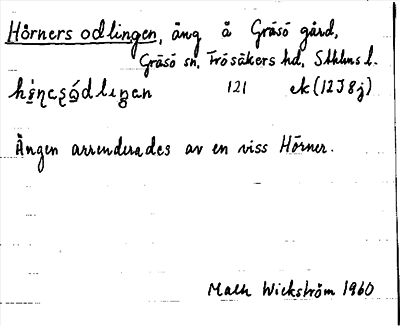 Hörners odlingen, äng å Gräsö gård,
Gräsö sn, Frösåkers hd, Sthlms l.
121 ek (12J8j)
Ängen arrenderades av en viss Hörner.
Wickström 1960